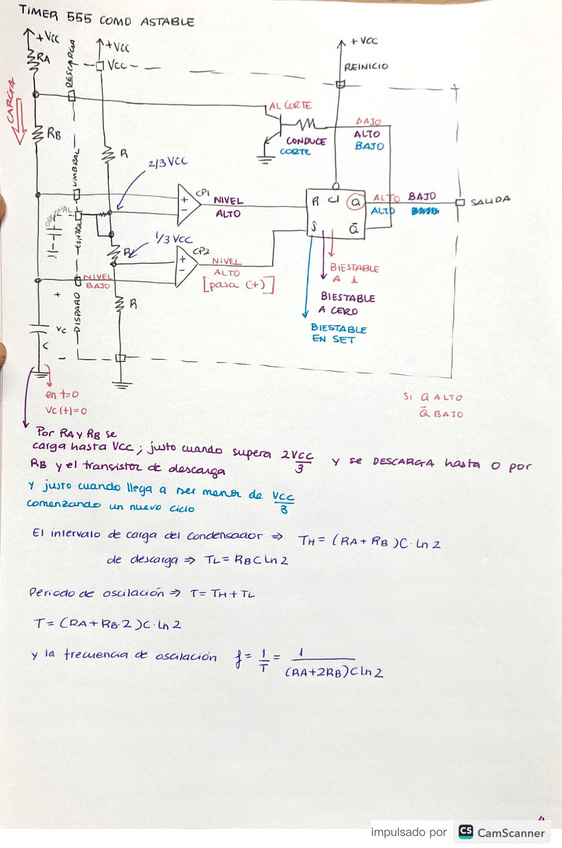 TIMER 555 COMO ASTABLE
+Vcc
RA
DESCARGA
+Vcc
Vcc
+Vcc
REINICIO
CARGA
AL CORTE
BAJO
ALTO
BAJO
CONDUCE
CORTE
RB
R
UMBRAL
2/3 VCC
CP1
+
-
NIVEL
ALTO
R
Q
ALTO
BAJO
ALTO
SALIDA
S
Q̄
CONTROL
1/3 VCC
R
CP2
+
-
NIVEL
ALTO
[pasa (+)]
NIVEL
BAJO
BIESTABLE
A 1
BIESTABLE
A CERO
BIESTABLE
EN SET
DISPARO
R
+
Vc
C
-
en t=0
Vc(t)=0
Si Q ALTO
Q̄ BAJO
Por RA y RB se
carga hasta Vcc; justo cuando supera 2Vcc/3 y se DESCARGA hasta 0 por
RB y el transistor de descarga
y justo cuando llega a ser menor de Vcc/3
comenzando un nuevo ciclo
El intervalo de carga del condensador ⇒ TH = (RA + RB)C·Ln2
de descarga ⇒ TL = RBCLn2
Periodo de oscilación ⇒ T = TH + TL
T = (RA + RB·2)C·Ln2
y la frecuencia de oscilación f = 1/T = 1/(RA+2RB)CLn2
impulsado por CS CamScanner